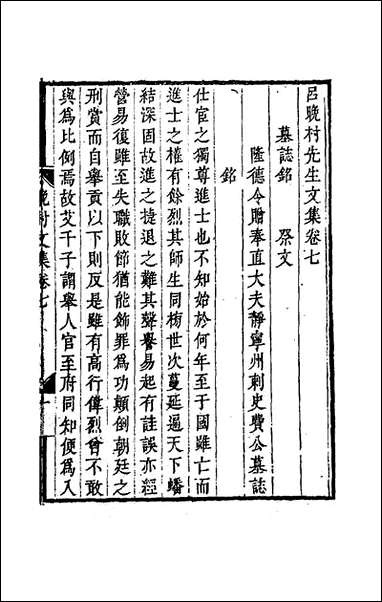 呂晚村先生文集卷七
墓誌銘　祭文
隆德令贈奉直大夫靜寧州刺史費公墓誌
銘
仕宦之獨尊進士也不知始於何年至于國雖亡而
進士之權有餘烈其師生同榜世次蔓延遍天下蟠
結深固故進之捷退之難其聲譽易起有詿誤亦經
營易復雖至失職敗節猶能飾罪為功顛倒朝廷之
刑賞而自舉貢以下則反是雖有高行偉烈曾不敢
與為比例焉故艾千子謂舉人官至府同知便為入
晚村文集卷七
一